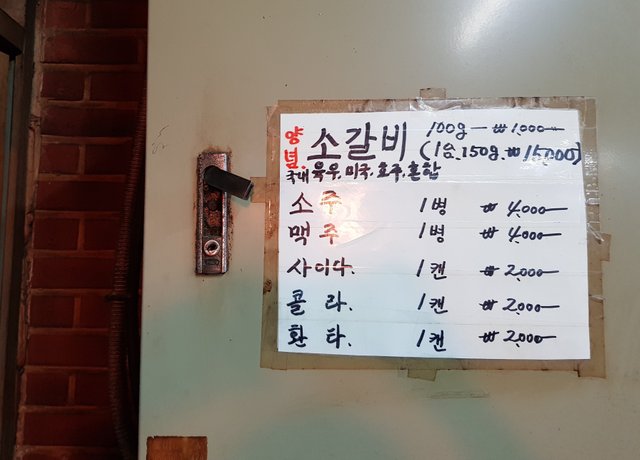 양념. 소갈비 100g - ₩1,000-
(1인. 150g. ₩15,000)
국내육우. 미국. 호주. 혼합
소주 1병 ₩4,000-
맥주 1병 ₩4,000-
사이다. 1캔 ₩2,000-
콜라. 1캔 ₩2,000-
환타. 1캔 ₩2,000-